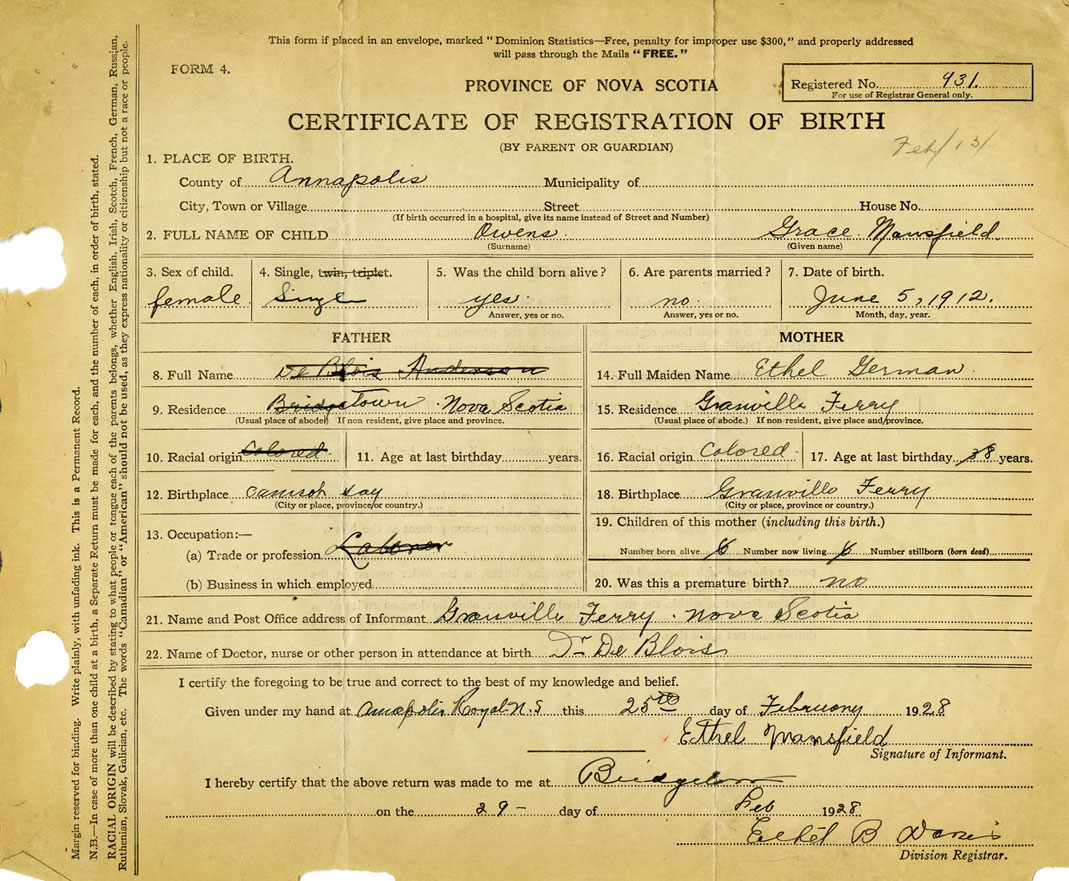 This form if placed in an envelope, marked "Dominion Statistics—Free, penalty for improper use $300," and properly addressed
will pass through the Mails "FREE."
FORM 4.
PROVINCE OF NOVA SCOTIA
Registered No. 931.
For use of Registrar General only.
CERTIFICATE OF REGISTRATION OF BIRTH
(BY PARENT OR GUARDIAN)
Feb/13/
1. PLACE OF BIRTH.
County of Annapolis Municipality of
City, Town or Village Street House No.
(If birth occurred in a hospital, give its name instead of Street and Number)
2. FULL NAME OF CHILD Owens. Grace Mansfield.
(Surname) (Given name)
3. Sex of child. 4. Single, twin, triplet. 5. Was the child born alive? 6. Are parents married? 7. Date of birth.
female Single yes. no. June 5, 1912.
Answer, yes or no. Answer, yes or no. Month, day, year.
FATHER
8. Full Name De Blois Anderson
9. Residence Bridgetown Nova Scotia
(Usual place of abode) If non resident, give place and province.
10. Racial origin Colored 11. Age at last birthday years.
12. Birthplace
(City or place, province or country.)
13. Occupation:—
(a) Trade or profession Laborer
(b) Business in which employed
MOTHER
14. Full Maiden Name Ethel German.
15. Residence Granville Ferry
(Usual place of abode.) If non resident, give place and province.
16. Racial origin Colored. 17. Age at last birthday 38 years.
18. Birthplace Granville Ferry
(City or place, province or country.)
19. Children of this mother (including this birth.)
Number born alive 6 Number now living 6 Number stillborn (born dead)
20. Was this a premature birth? no
21. Name and Post Office address of Informant Granville Ferry. Nova Scotia
22. Name of Doctor, nurse or other person in attendance at birth Dr De Blois
I certify the foregoing to be true and correct to the best of my knowledge and belief.
Given under my hand at Annapolis Royal N.S this 25th day of February 1928
Ethel Mansfield
Signature of Informant.
I hereby certify that the above return was made to me at Bridgetown
on the 29- day of Feb 1928
Ethel B
Division Registrar.
Margin reserved for binding. Write plainly, with unfading ink. This is a Permanent Record.
N.B.—In case of more than one child at a birth, a Separate Return must be made for each, and the number of each, in order of birth, stated.
RACIAL ORIGIN will be described by stating to what people or tongue each of the parents belongs, whether English, Irish, Scotch, French, German, Russian,
Ruthenian, Slovak, Galician, etc. The words "Canadian" or "American" should not be used, as they express nationality or citizenship but not a race or people.